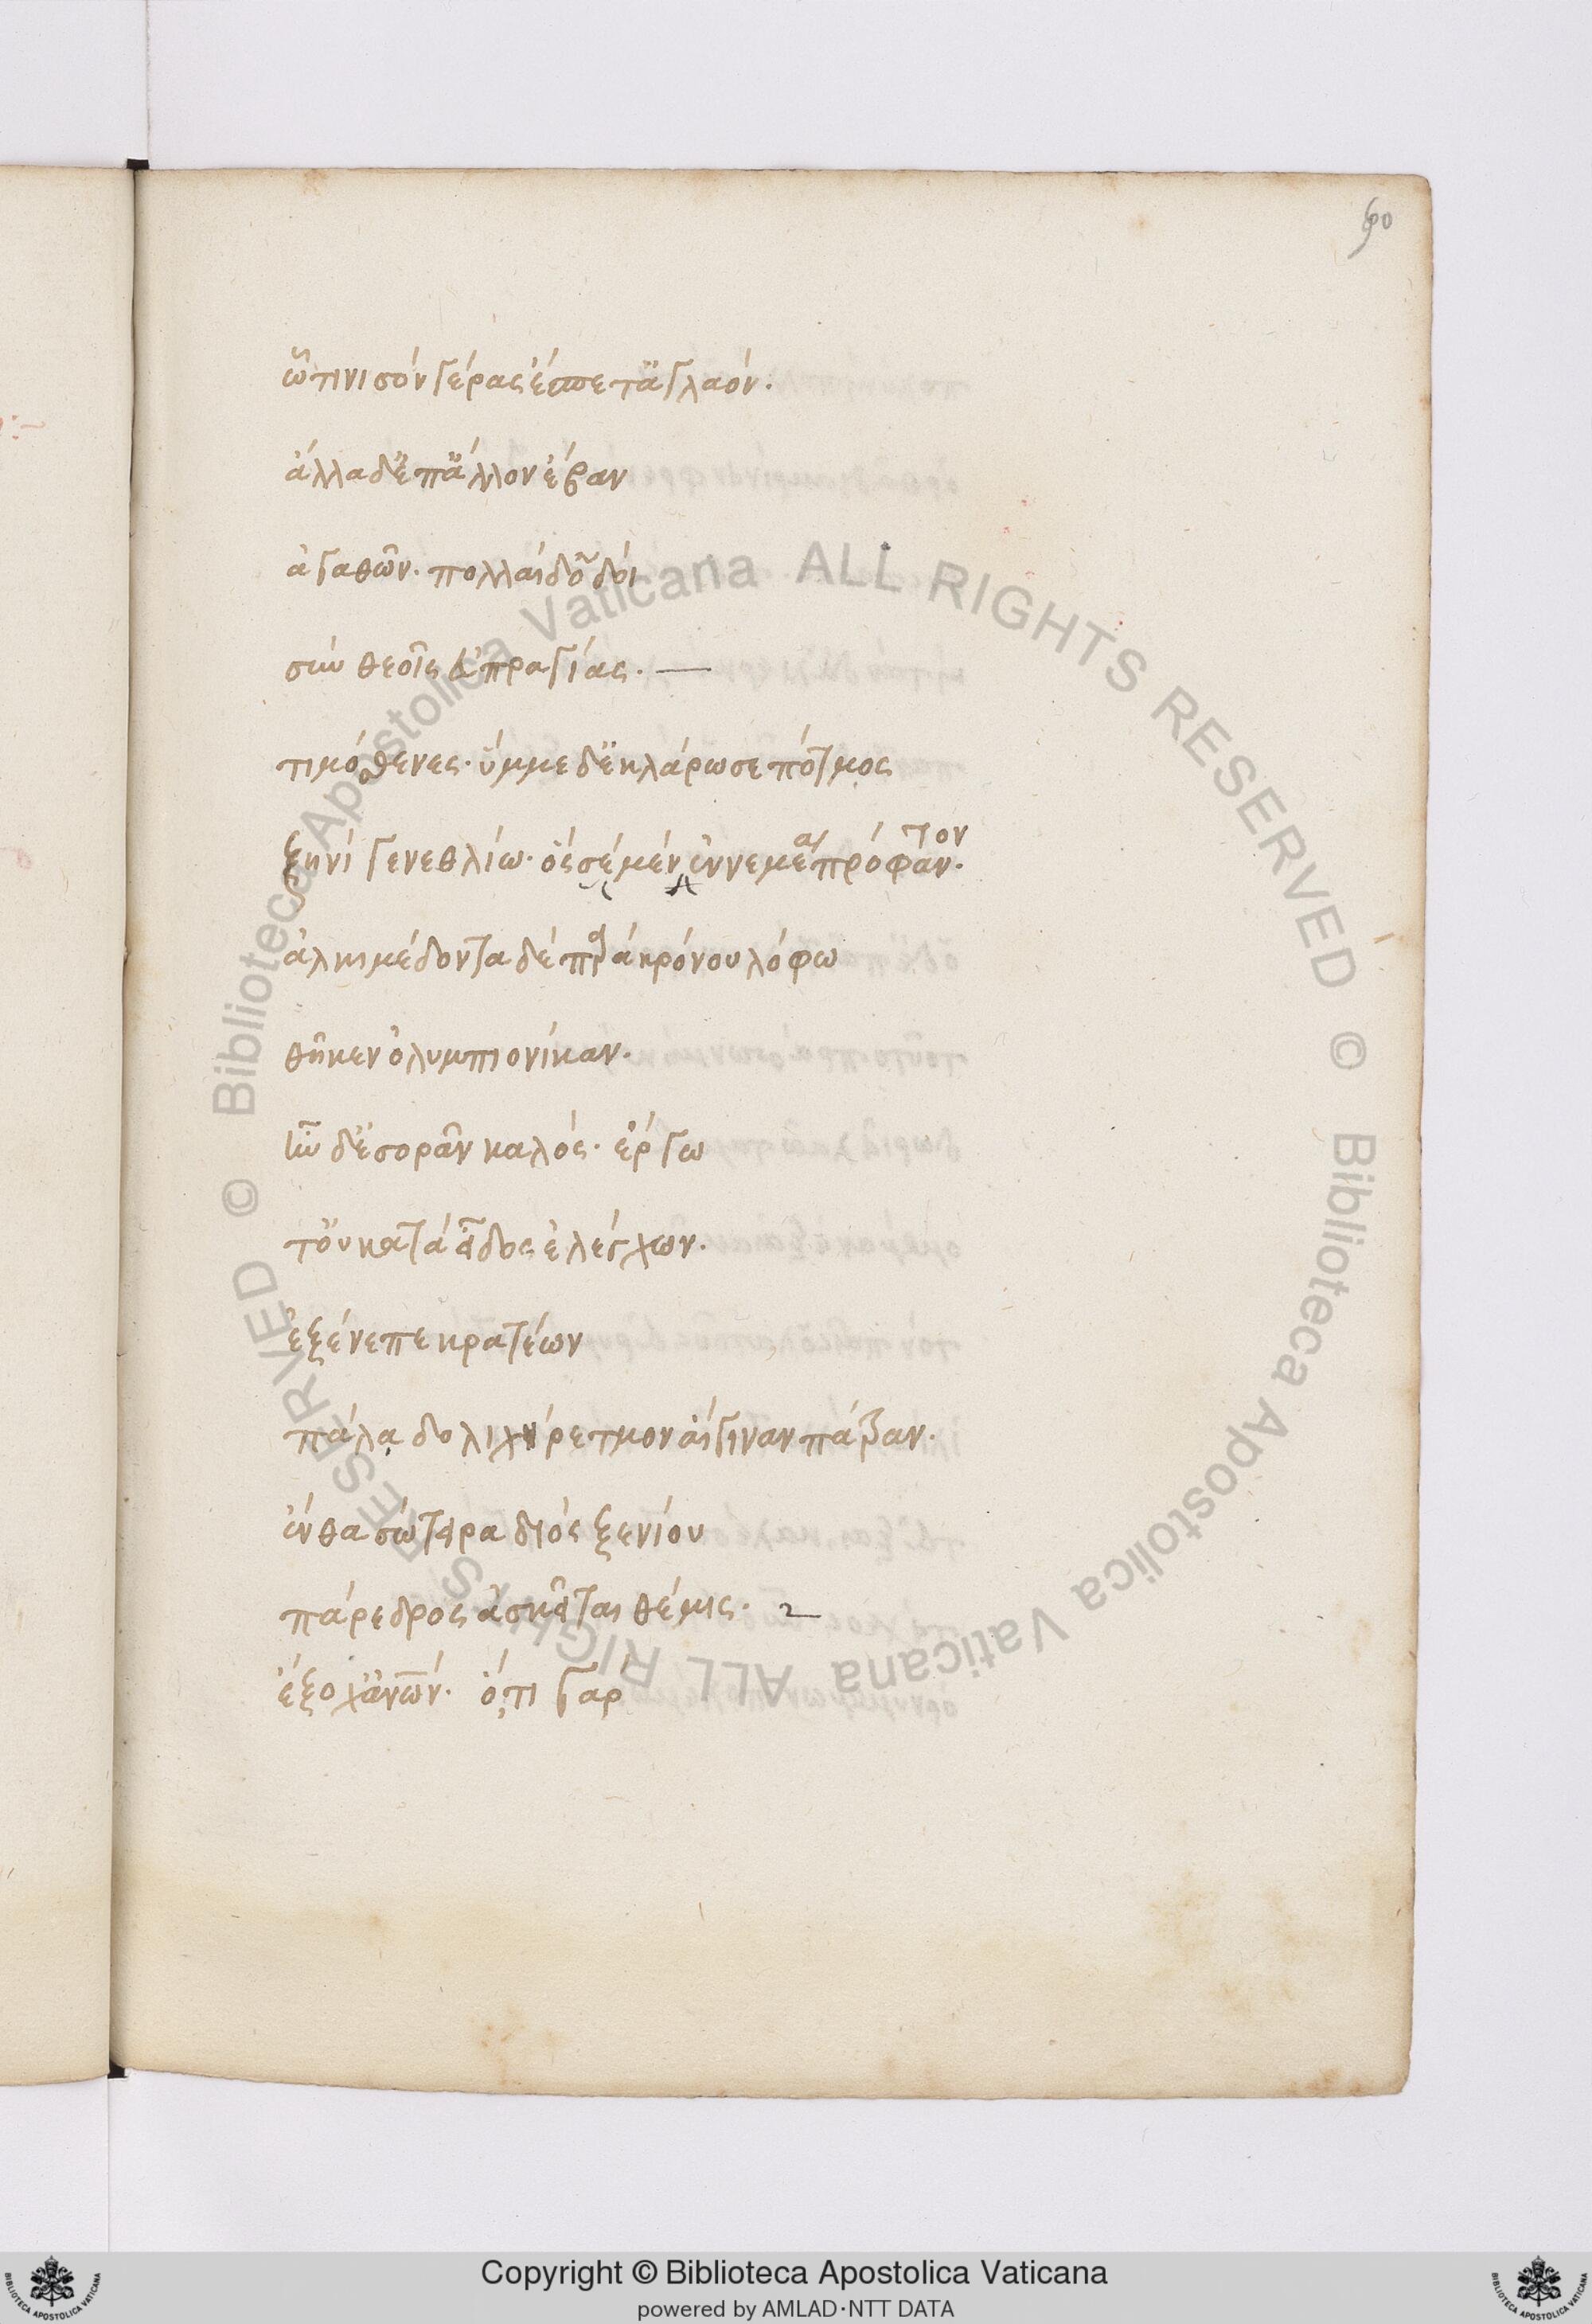 90
ὥτινι σὸν γέρας ἕσπετ ἀγλαόν.
ἄλλα δ' ἐπ' ἄλλον ἔβαν
ἀγαθῶν. πολλαὶ δ' ὁδοὶ
σὺν θεοῖς εὐπραγίας.
τιμόσθενες. ὔμμε δ' ἐκλάρωσε πότμος
ζηνὶ γενεθλίω. ὃς σὲ μὲν ἐν νεμέα πρόφατον.
ἀλκιμέδοντα δὲ παρὰ κρόνου λόφω
θῆκεν ὀλυμπιονίκαν.
ἦν δ' ἐσορᾶν καλός. ἔργω
τ' οὐ κατὰ εἶδος ἐλέγχων.
ἐξένεπε κρατέων
πάλα δολιχήρετμον αἴγιναν πάτραν.
ἔνθα σώτειρα διὸς ξενίου
πάρεδρος ἀσκεῖται θέμις.
ἔξοχ' ἀνων. ὅ,τι γὰρ
© Biblioteca Apostolica Vaticana ALL RIGHTS RESERVED
© Biblioteca Apostolica Vaticana ALL RIGHTS RESERVED
Copyright © Biblioteca Apostolica Vaticana
powered by AMLAD·NTT DATA
BIBLIOTECA APOSTOLICA VATICANA
BIBLIOTECA APOSTOLICA VATICANA